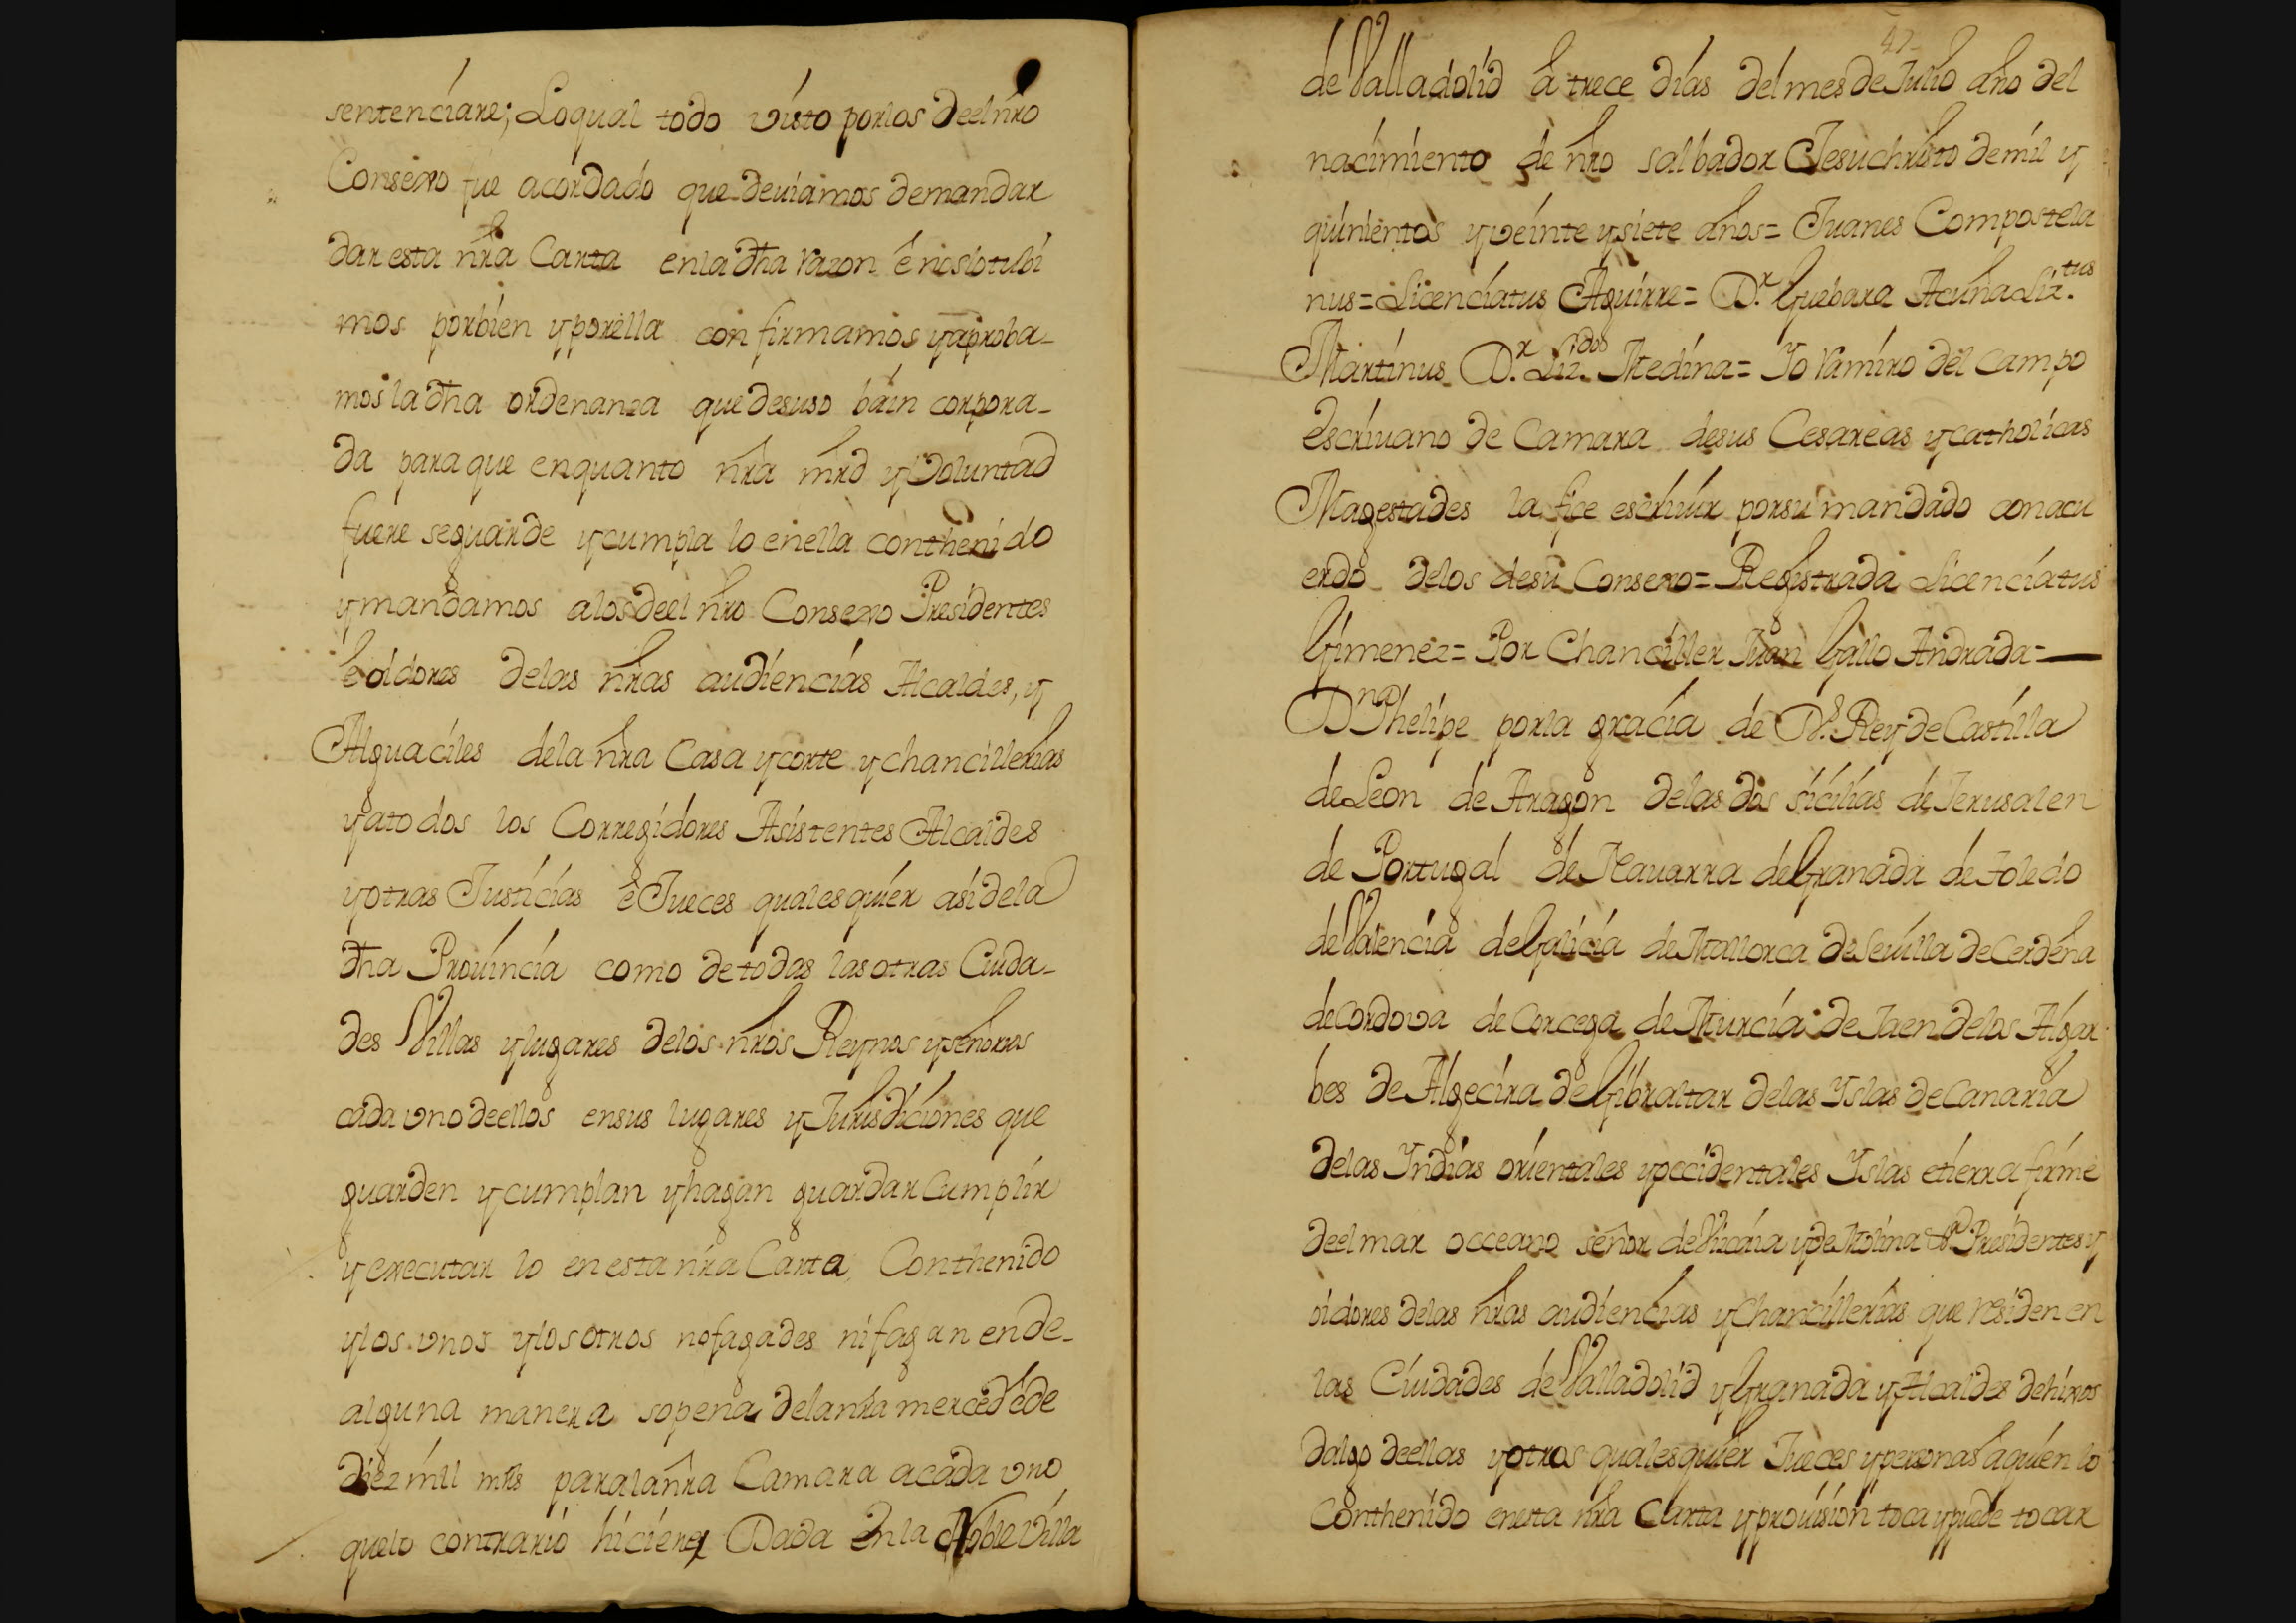 sentenciare; Loqual todo visto porlos deel nro
Consexo fue acordado que deviamos demandar
dar esta nra Carta enla dha razon é noslotubi
mos porbien yporella confirmamos yaproba-
mos la dha ordenanza que desuso báin corpora-
da para que enquanto nra mrd y Voluntad
fuere seguarde ycumpla lo enella conthenido
ymandamos alos deel nro Consexo Presidentes
é oidores delas nras audiencias Alcaldes, y
Alguaciles dela nra Casa ycorte ychancillerias
yatodos los Corregidores Asistentes Alcaldes
yotras Justicias é Jueces qualesquier asidela
dha Provincia como de todas las otras Ciuda-
des Villas ylugares delos nros Reynos yseñorios
cada vno deellos ensus lugares y Jurisdiciones que
guarden ycumplan yhagan guardar Cumplir
y executar lo en esta nra Carta, Conthenido
ylos vnos ylos otros nofagades nifagan ende-
alguna manera sopena delanra merced éde
diez mil mrs paralanra Camara acada vno
quelo contrario hiciere Dada En la Noble Villa
47
de Valladolid á trece dias del mes de Julio año del
nacimiento de nro salbador Jesuchristo demil y
quinientos yveinte ysiete años= Juanes Compostela
nus= Licenciatus Aguirre= D.r Guebara Acuña Liz.tus
Martinus D.r Liz.do Medina= Yo ramiro del campo
escrivano de Camara desus Cesareas ycatholicas
Magestades la fice escrivir porsu mandado conacu
erdo delos desu Consexo= Registrada Licenciatus
Gimenez= Por Chanciller Juan Gallo Andrada=
Dn Phelipe porla gracia de Ds. Rey de Castilla
de Leon de Aragon delas dos sicilias de Jerusalen
de Portugal de Navarra de Granada de toledo
de Valencia de Galicia de Mallorca de Sevilla de Cerdeña
de cordova de Corcega de Murcia de Jaen delos Algar
bes de Algecira de Gibraltar delas Yslas de Canaria
delas Yndias orientales yoccidentales Yslas etierra firme
deelmar occeano señor de Vizcaia yde Molina Presidentes y
oidores delas nras audiencias ychancillerias que residen en
las Ciudades de Valladolid y Granada y Alcaldes dehixos
dalgo deellas yotros qualesquier Jueces ypersonas aquien lo
Conthenido enesta nra Carta yprovision toca ypuede tocar